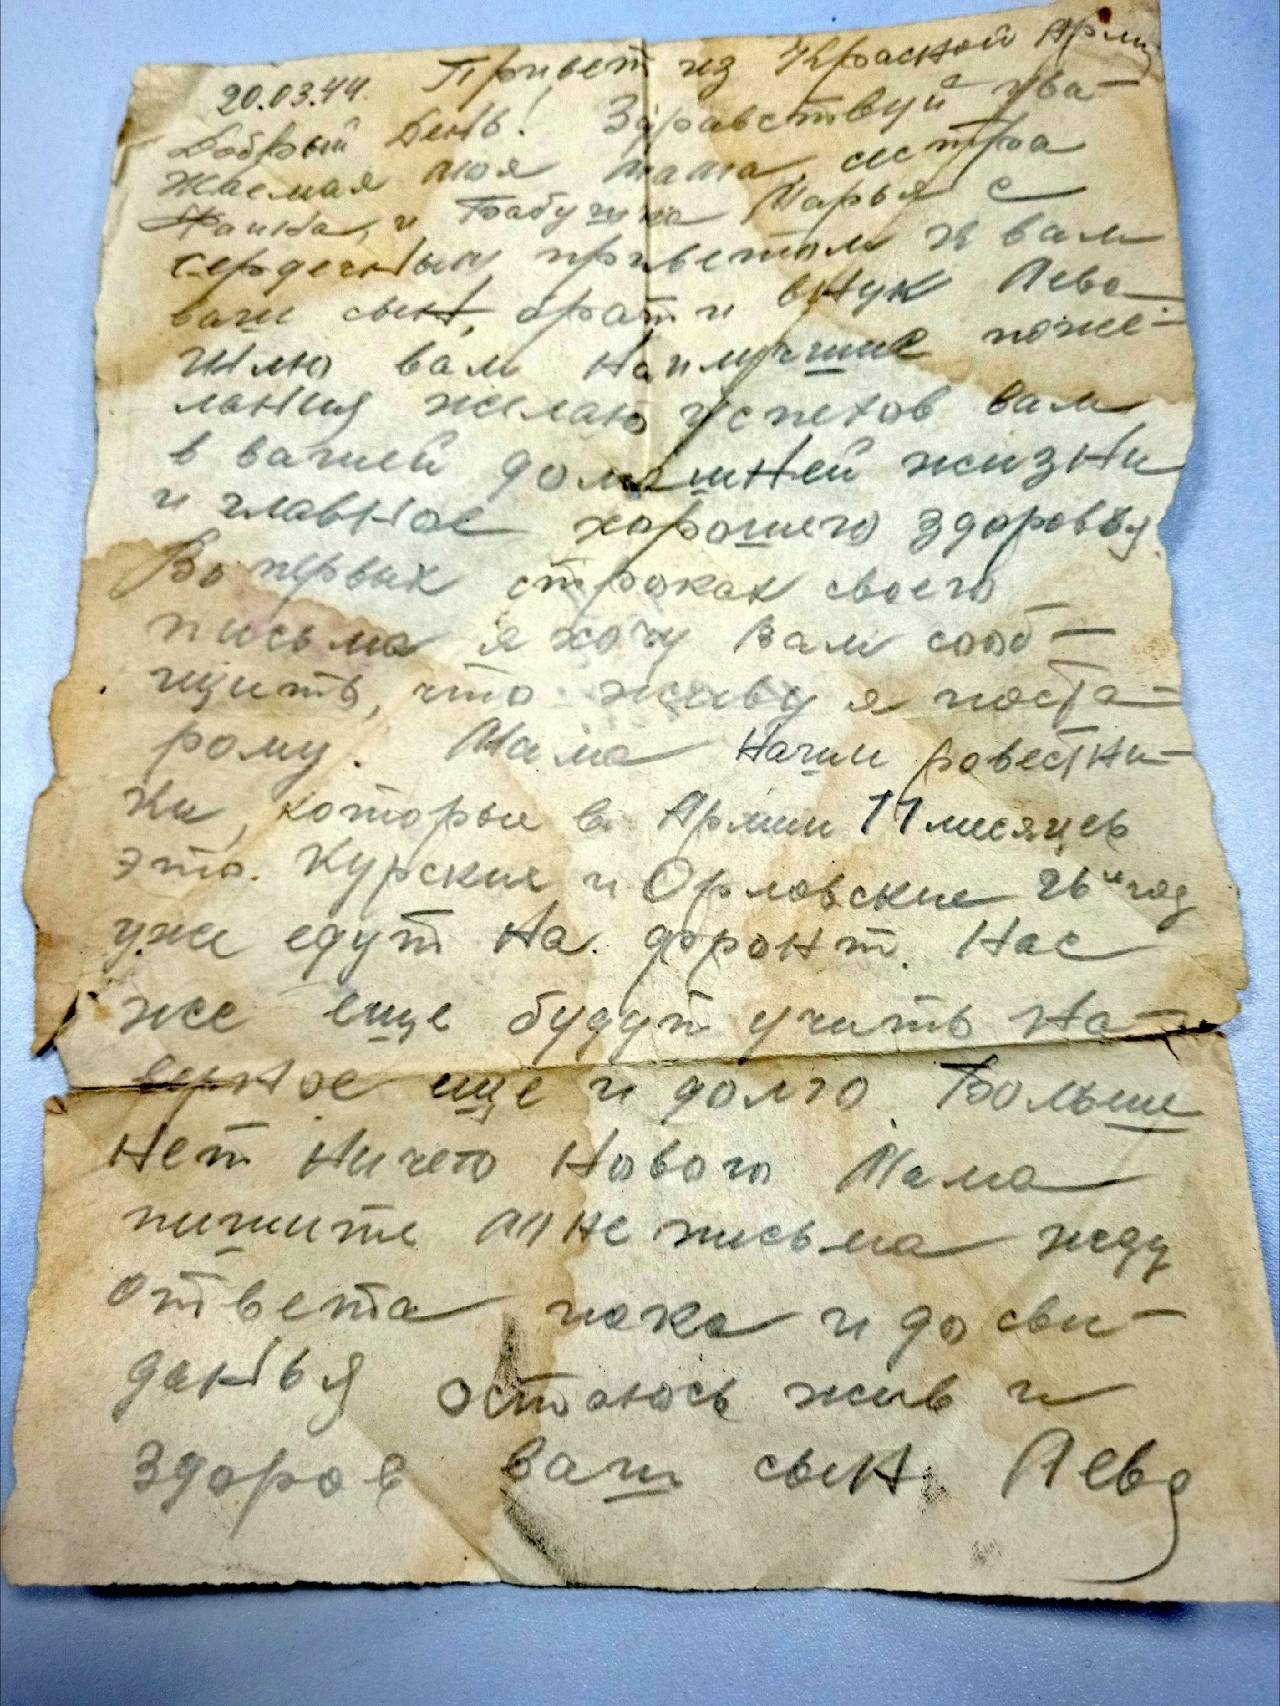 20.03.44. Привет из Красной Арми
Добрый День! Здравствуй ува-
жаемая моя мама, сестра
и Бабушка Марья с
сердечным приветом к вам
ваш сын, брат и внук Лева
Шлю вам наилучшие поже-
лания желаю успехов вам
в вашей домашней жизни
и главное хорошего здоровья
Во первых строках своего
письма я хочу Вам сооб-
щить, что живу я поста-
рому. Мама наши ровестни-
ки, которые в Армии 11 месяцев
это. Курские и Орловские 26й год
уже едут на фронт. Нас
же еще будут учить на-
верное еще и долго. Больше
нет ничего нового Мама
пишите мне письма жду
ответа пока и до сви-
данья остаюсь жив и
здоров ваш сын Лева